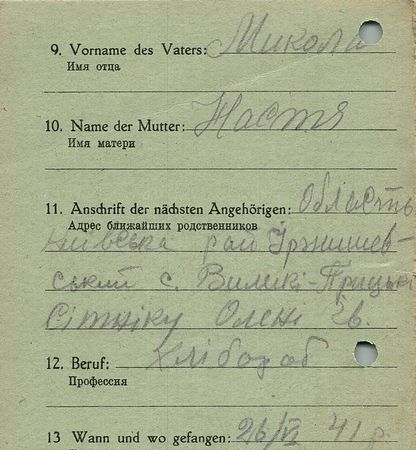 9. Vorname des Vaters: Микола
Имя отца
10. Name der Mutter: Настя
Имя матери
11. Anschrift der nächsten Angehörigen: Область
Адрес ближайших родственников
Київська рай Іржишев-
ський с. Виликі-Прицькі
Сітніку Олені Ів.
12. Beruf: Хлібороб
Профессия
13 Wann und wo gefangen: 26/VI 41 р.